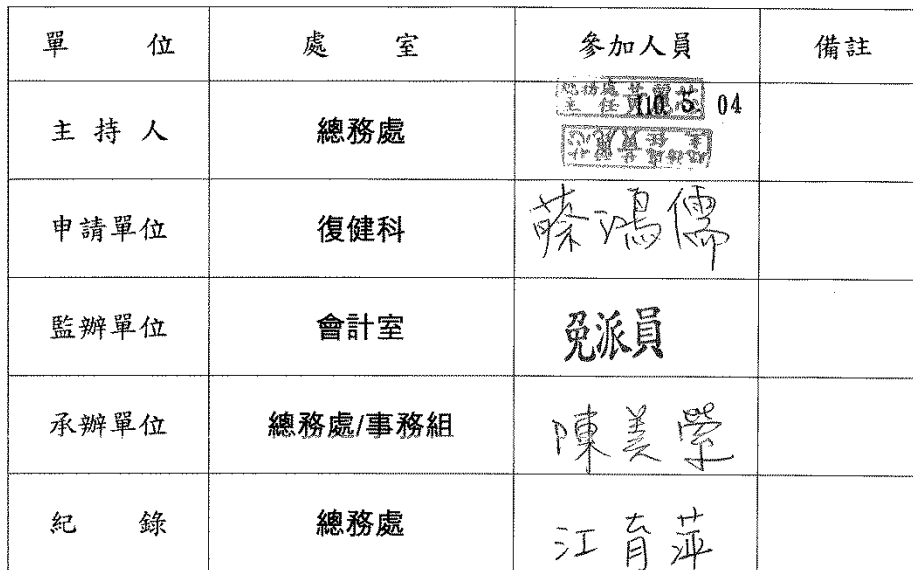 單 位 處 室 參加人員 備註
主 持 人 總務處 110. 5. 04
申請單位 復健科 蔡鴻儒
監辦單位 會計室 免派員
承辦單位 總務處/事務組 陳美瑩
紀 錄 總務處 江育萍